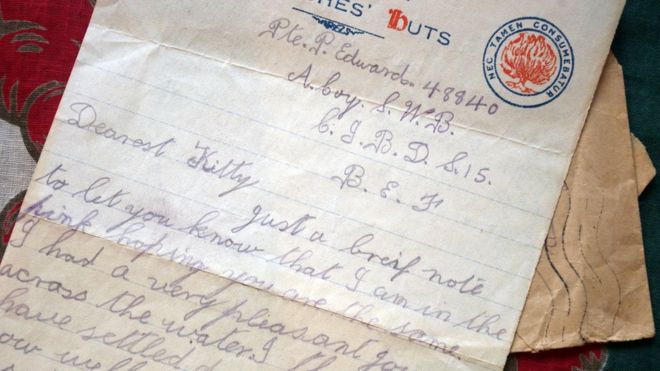 HES' HUTS
NEC TAMEN CONSUMEBATUR
Pte. P. Edward. 48840
A. boy. S. W. B.
C. I. B. D. S.15.
B. E. F
Dearest Kitty
Just a breif note
to let you know that I am in the
pink hoping you are the same
I had a very pleasant
across the water. I
have settled
well